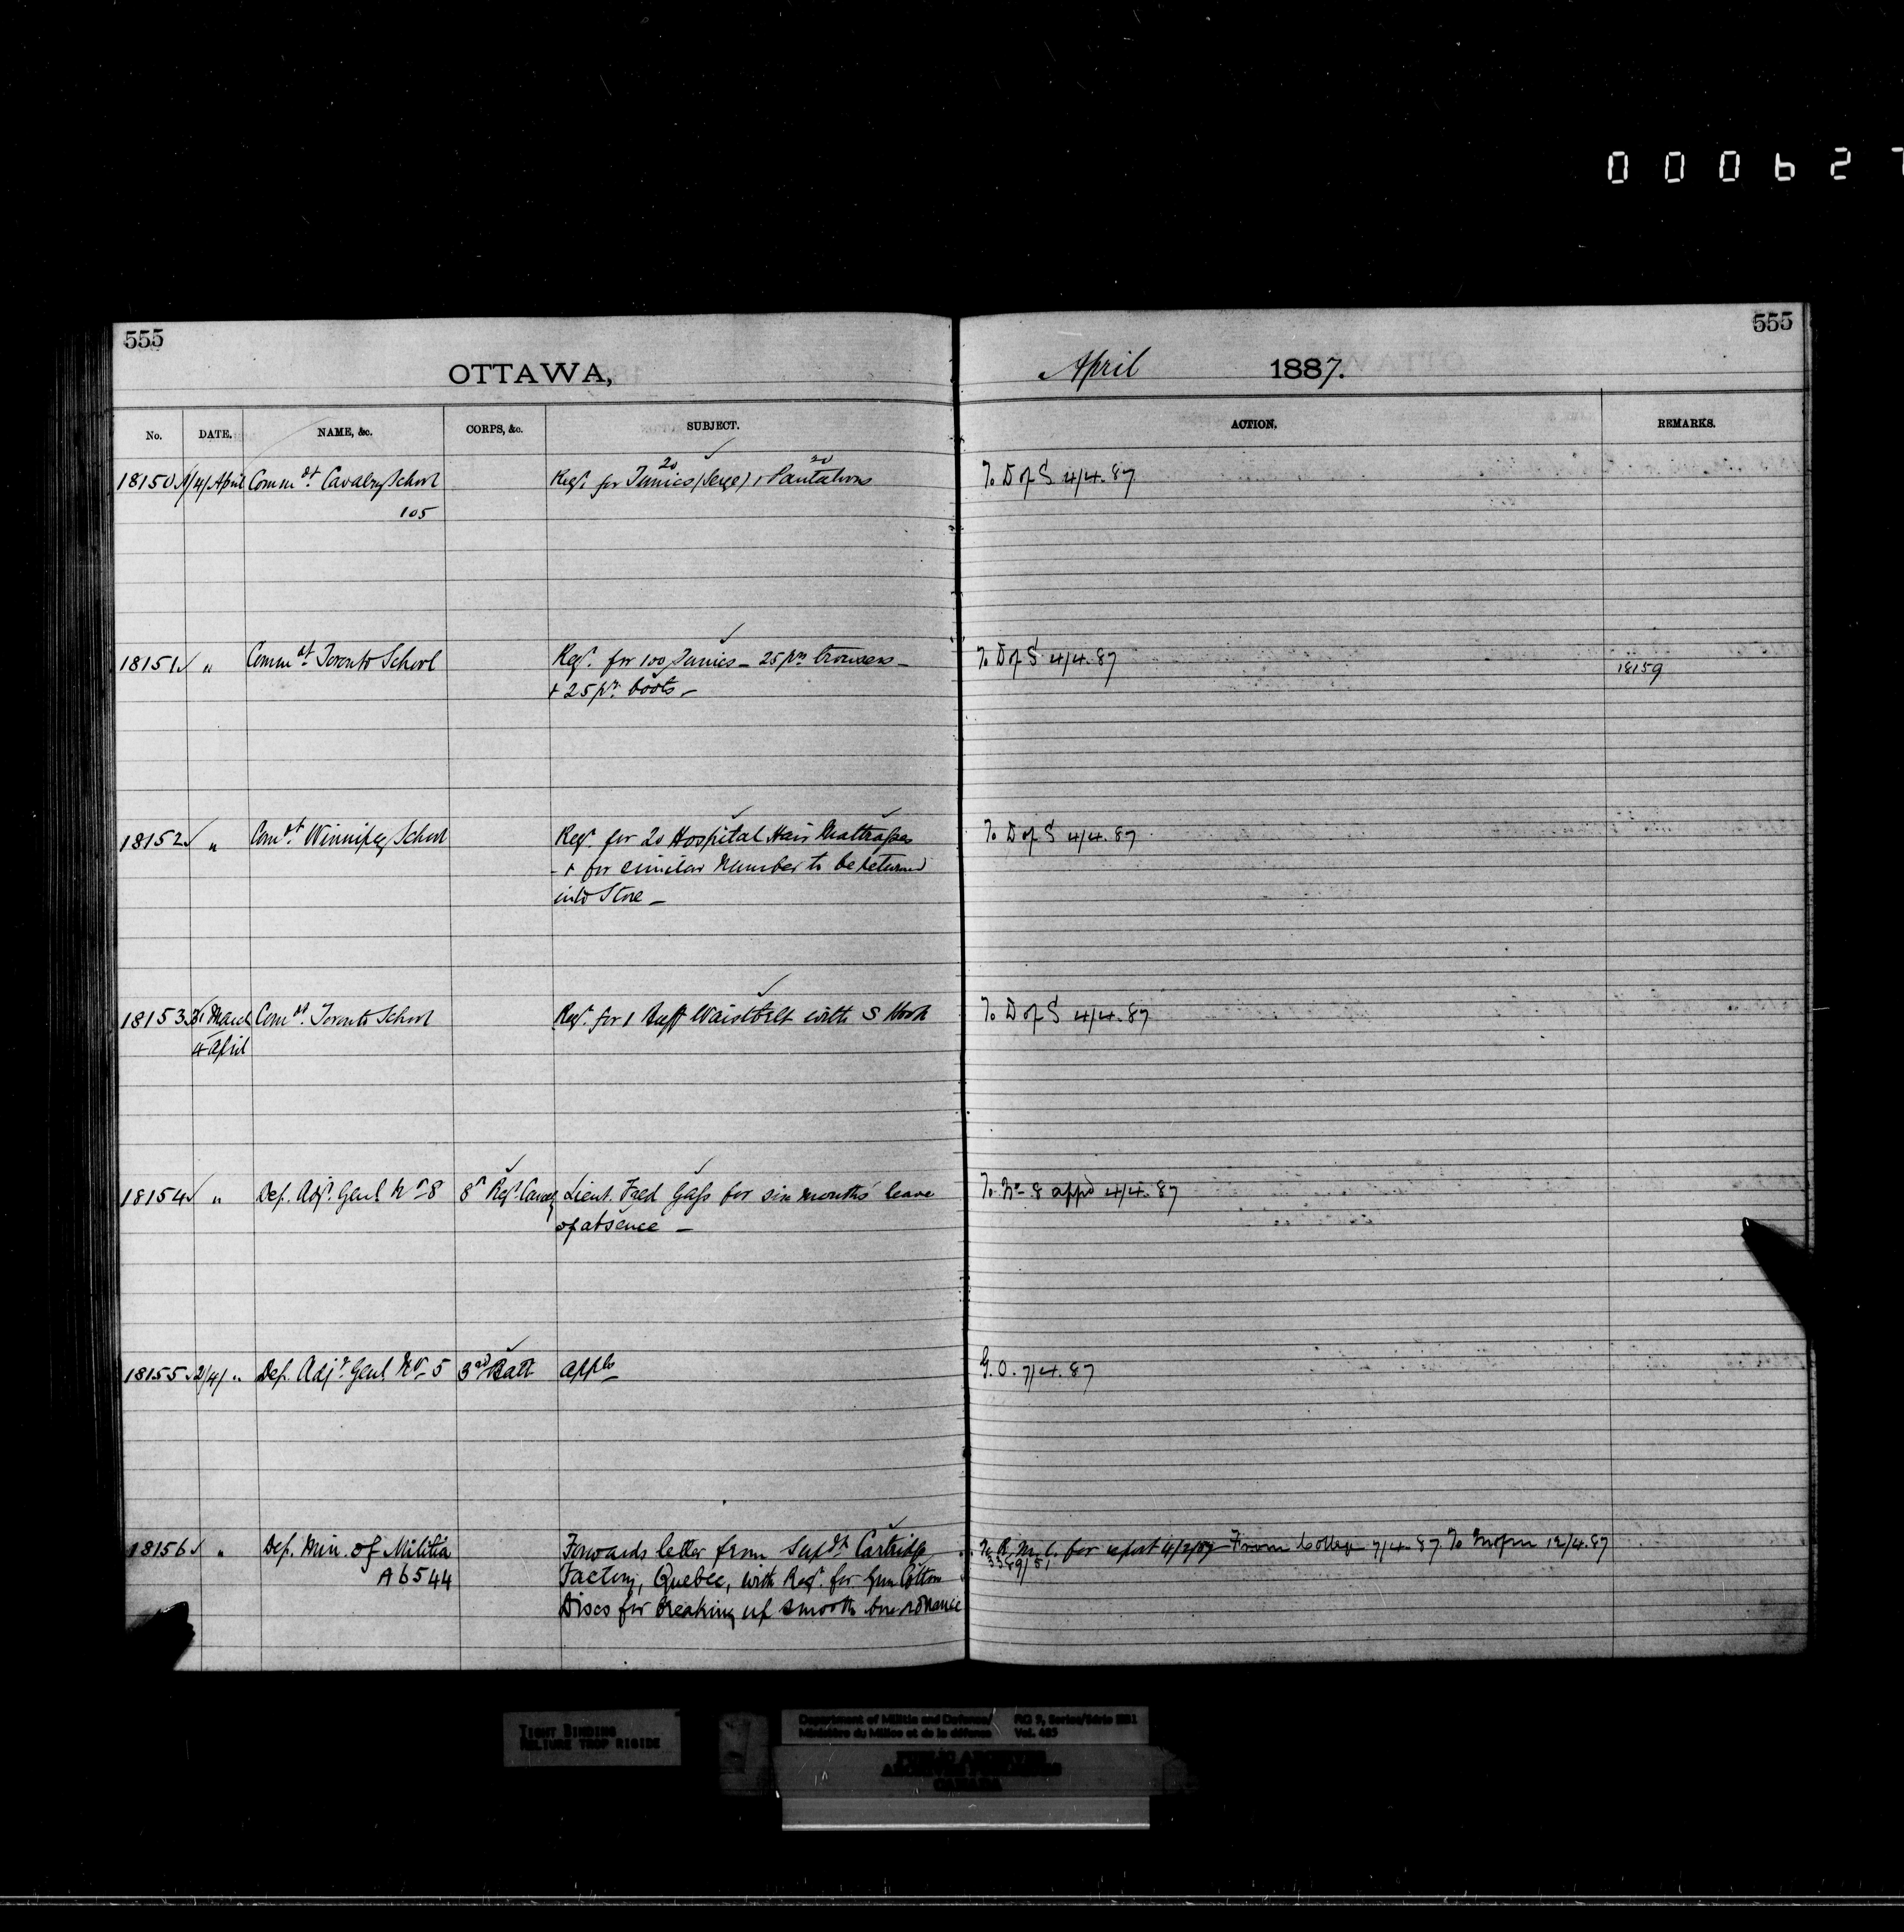 000627
555
555
OTTAWA,
April 1887.
No. DATE. NAME, &c. CORPS, &c. SUBJECT. ACTION. REMARKS.
18150 1/4/ April Commdt. Cavalry School Reqn. for 20 Tunics (Serge) + 20 Pantaloons To D of S 4/4.87
105
18151 " Commdt. Toronto School Reqn. for 100 Tunics - 25 prs trousers - To D of S 4/4.87 18159
+ 25 prs. boots -
18152 " Comdt. Winnipeg School Reqn. for 20 Hospital Hair Mattrasses To D of S 4/4.87
- + for similar number to be returned
into Store -
18153 31 March Comdt. Toronto School Reqn. for 1 Buff Waistbelt with S Hook To D of S 4/4.87
4 April
18154 " Dep. Adjt. Genl No 8 8th Regt. Cavalry Lieut. Fred Gass for six months' leave To No 8 appd 4/4.87
of absence -
18155 2/4/ " Dep. Adjt. Genl No 5 3rd Batt appts G.O. 7/4.87
18156 " Dep. Min. of Militia Forwards letter from Supdt. Cartridge To R.M.C. for report 4/2/87 From College 7/4.87 To 12/4.87
A6544 Factory, Quebec, with Reqn. for Gun Cotton
Discs for breaking up smooth bore ordnance
TIGHT BINDING
RELIURE TROP RIGIDE
Department of Militia and Defence/ RG 9, Series/Série IIB1
Ministère du Milice et de la défense Vol. 485
PUBLIC ARCHIVES
ARCHIVES PUBLIQUES
CANADA